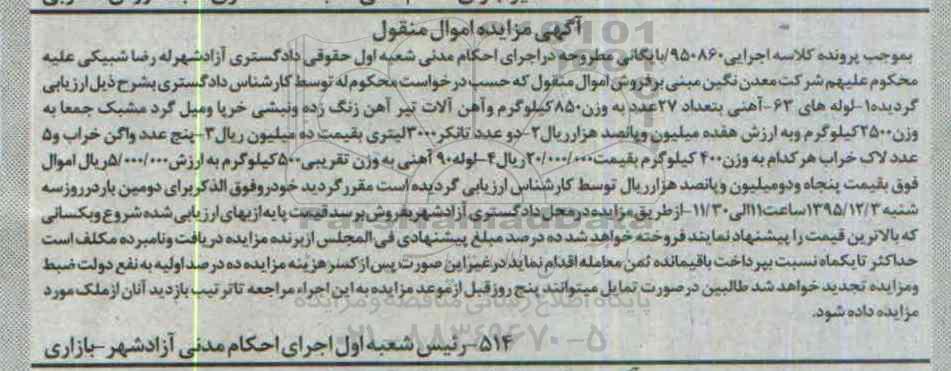 آگهی مزایده اموال منقول
بموجب پرونده کلاسه اجرایی۹۵۰۸۶۰/بایگانی مطروحه دراجرای احکام مدنی شعبه اول حقوقی دادگستری آزادشهرله رضا شبیکی علیه
محکوم علیهم شرکت معدن نگین مبنی برفروش اموال منقول که حسب درخواست محکوم له توسط کارشناس دادگستری بشرح ذیل ارزیابی
گردیده۱-لوله های ۶۳-آهنی بتعداد ۲۷عدد به وزن۸۵۰کیلوگرم وآهن آلات تیر آهن زنگ زده ونبشی خرپا ومیل گرد مشبک جمعا به
وزن۲۵۰۰کیلوگرم وبه ارزش هفده میلیون وپانصد هزارریال۲-دو عدد تانکر۳۰۰۰لیتری بقیمت ده میلیون ریال۳-پنج عدد واگن خراب و۵
عدد لاک خراب هرکدام به وزن۴۰۰ کیلوگرم بقیمت۲۰/۰۰۰/۰۰۰ریال۴-لوله۹۰آهنی به وزن تقریبی۵۰۰کیلوگرم به ارزش۵/۰۰۰/۰۰۰ریال اموال
فوق بقیمت پنجاه ودومیلیون وپانصد هزارریال توسط کارشناس ارزیابی گردیده است مقررگردید خودروفوق الذکربرای دومین باردرروزسه
شنبه۱۳۹۵/۱۲/۳ساعت۱۱الی۱۱/۳۰-ازطریق مزایده درمحل دادگستری آزادشهربفروش برسدقیمت پایه ازبهای ارزیابی شده شروع وبکسانی
که بالاترین قیمت را پیشنهاد نمایند فروخته خواهد شد ده درصد مبلغ پیشنهادی فی المجلس ازبرنده مزایده دریافت ونامبرده مکلف است
حداکثر تایکماه نسبت بپرداخت باقیمانده ثمن معامله اقدام نماید درغیراین صورت پس ازکسرهزینه مزایده ده درصد اولیه به نفع دولت ضبط
ومزایده تجدید خواهد شد طالبین درصورت تمایل میتوانند پنج روزقبل ازموعد مزایده به این اجراء مراجعه تاترتیب بازدید آنان ازملک مورد
مزایده داده شود.
۵۱۴-رئیس شعبه اول اجرای احکام مدنی آزادشهر-بازاری
پایگاه اطلاع رسانی مناقصه و مزایده
۰۲۱-۸۸۳۴۹۶۷۰-۵